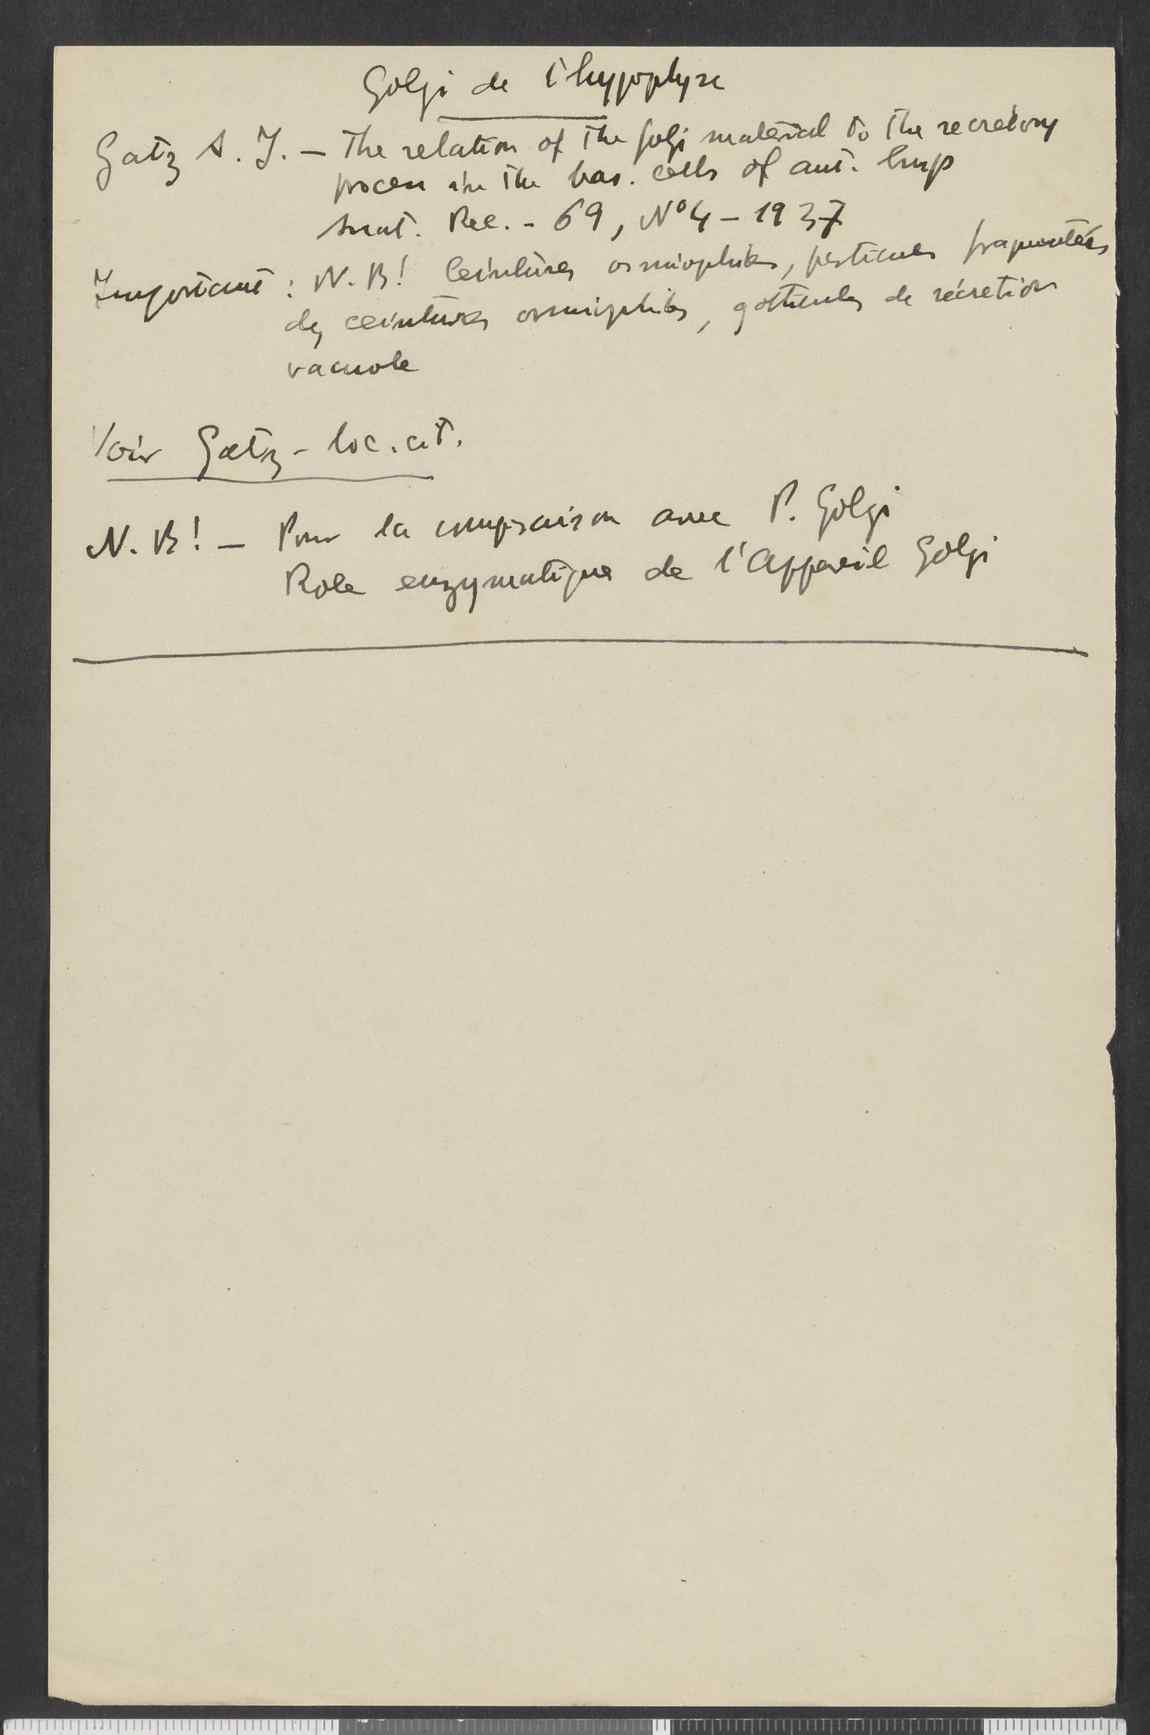 Golgi de l'hypophyse
Gatz A. J. – The relation of the golgi material to the secretory
process in the bas. cells of ant. hyp
Anat. Rec. - 69, N°4 – 1937
Important : N.B! Ceintures osmiophiles, particules fragmentées
des ceintures osmiophiles, gotticules de sécrétion
vacuole
Voir Gatz – loc. cit.
N.B! – Pour la comparaison avec P. Golgi
Role enzymatique de l'Appareil Golgi